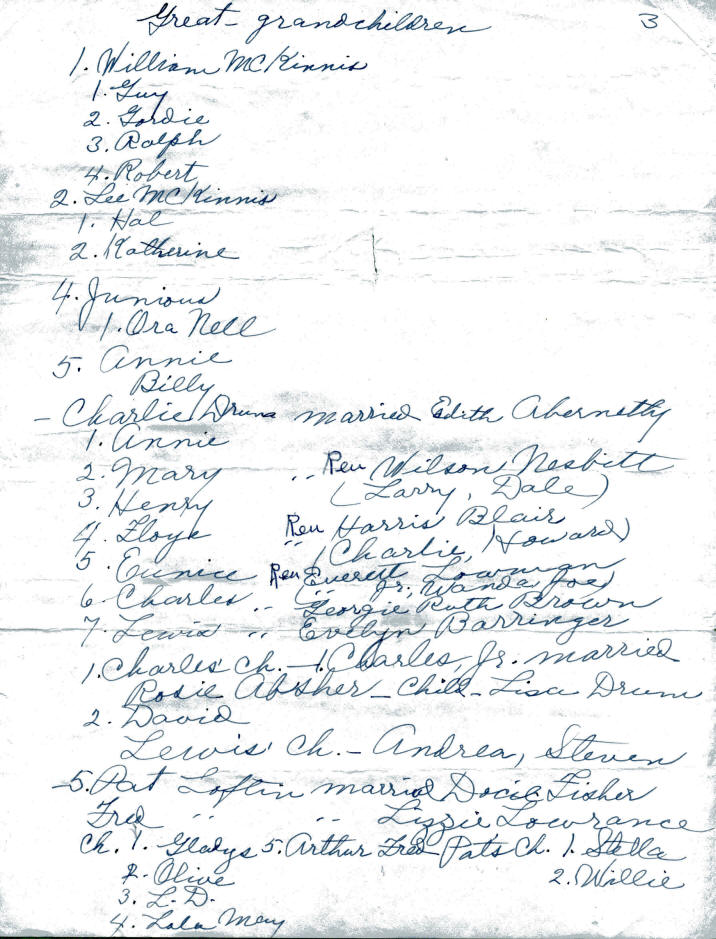 Great-grandchildren 3
1. William McKinnis
1. Guy
2. Gordie
3. Ralph
4. Robert
2. Lee McKinnis
1. Hal
2. Katherine
4. Junious
1. Ora Nell
5. Annie
Billy
- Charlie Drum married Edith Abernethy
1. Annie
2. Mary " Rev Wilson Nesbitt
3. Henry (Larry, Dale)
4. Floye " Rev Harris Blair
(Charlie, Howard)
5. Eunice " Rev Everett Lowman
(Jr, Wanda, Joe)
6. Charles " Georgie Ruth Brown
7. Lewis " Evelyn Barringer
1. Charles' ch. - 1. Charles, Jr. married
Rosie Absher - Child - Lisa Drum
2. David
Lewis' Ch. - Andrea, Steven
-5. Pat Loftin married Docia Fisher
Fred " " Lizzie Lowrance
Ch. 1. Gladys 5. Arthur Fred Pats Ch. 1. Stella
2. Olive 2. Willie
3. L.D.
4. Lala Mey